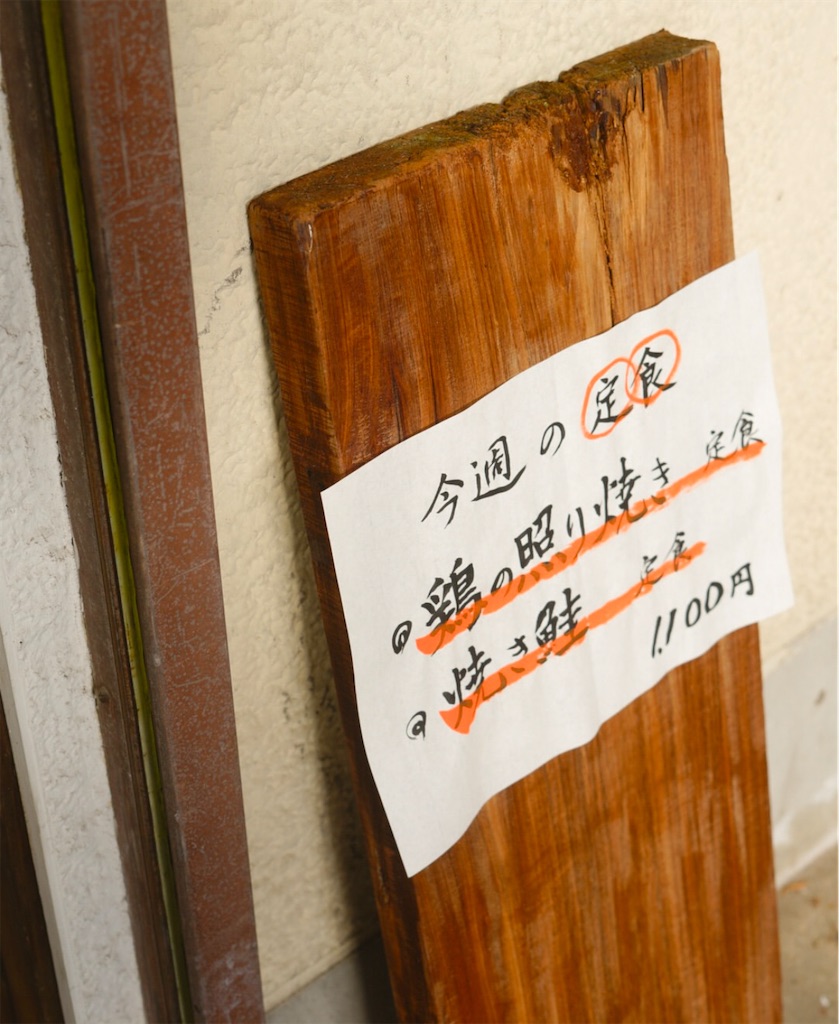 今週の定食
◎鶏の照り焼き定食
◎焼き鮭定食
1,100円